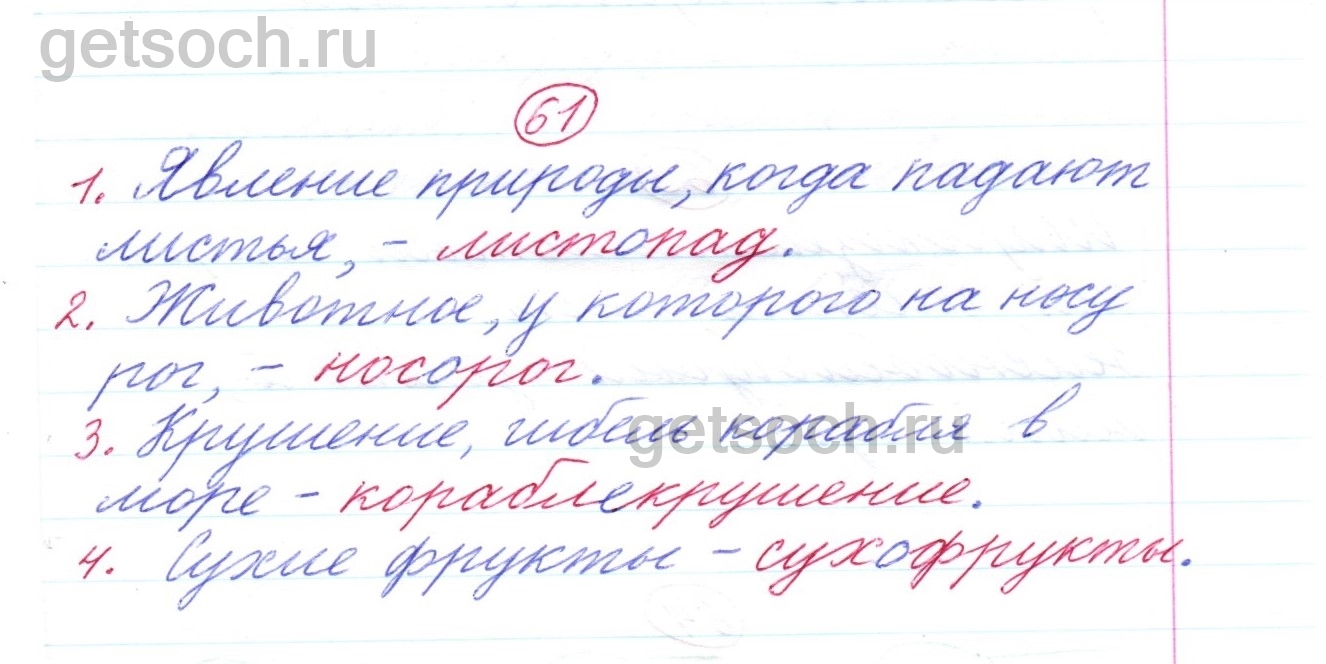 getsoch.ru
61
1. Явление природы, когда падают
листья, – листопад.
2. Животное, у которого на носу
рог, – носорог.
3. Крушение, гибель корабля в
getsoch.ru
море – кораблекрушение.
4. Сухие фрукты – сухофрукты.